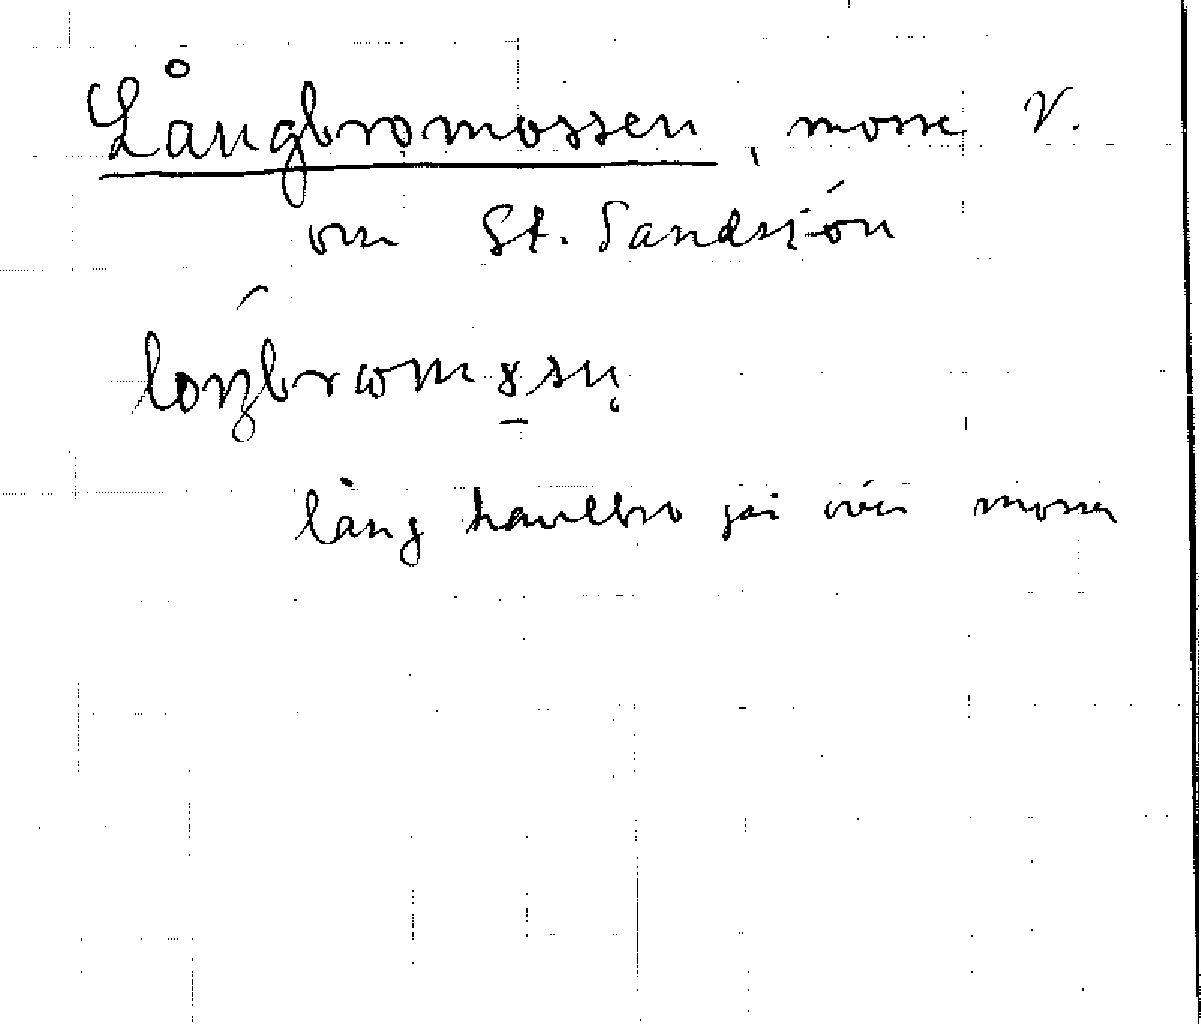 Långbromossen, mosse V.
om St. Sandsjön
lång kavelbro på över mossen